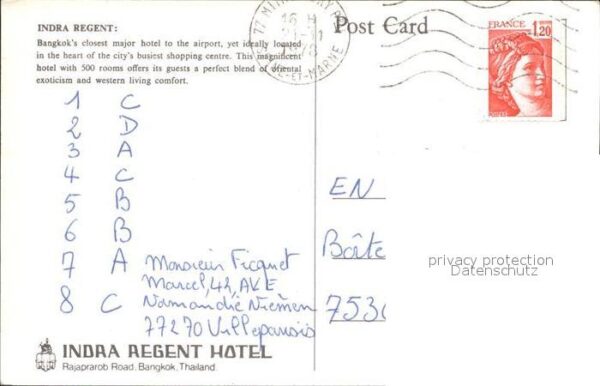 INDRA REGENT:
Bangkok's closest major hotel to the airport, yet ideally located
in the heart of the city's busiest shopping centre. This magnificent
hotel with 500 rooms offers its guests a perfect blend of oriental
exoticism and western living comfort.
1 C
2 D
3 A
4 C
5 B
6 B
7 A
8 C
Monsieur Ficquet
Marcel, 42, AVE
Normandie Niemen
77270 Villeparisis
INDRA REGENT HOTEL
Rajaprarob Road. Bangkok, Thailand.
Post Card
16 H
SEINE-ET-MARNE
FRANCE
1,20
POSTES
EN
Boîte
7530
privacy protection
Datenschutz